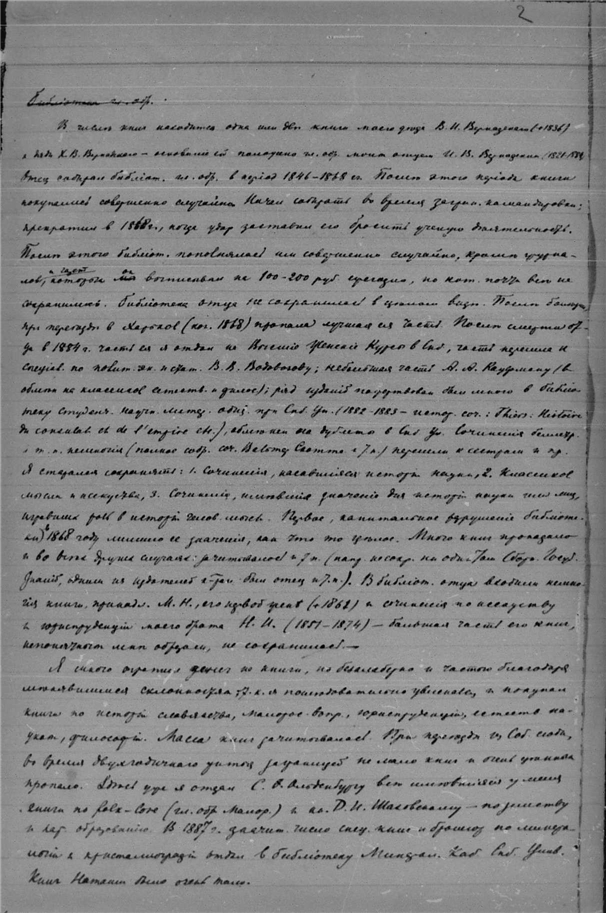 2
Библиотека гл. обр.
В числе книг находится одна или две книги моего деда В. И. Вернадского (+1838)
и дяди Х. В. Вернадского — основание ей положено гл. обр. моим отцем И. В. Вернадским (1821-1884
Отец собирал библиот. гл. обр. в период 1846-1868 гг. После этого периода книги
покупаемы совершенно случайны. Начал собирать во время загран. командировки;
прекратил в 1868 г., когда удар заставил его бросить ученую деятельность.
После этого библиот. пополнялась или совершенно случайно, кроме журна-
лов, и газет которые он выписывал на 100-200 руб. ежегодно, но кот. почти все не
сохранились. Библиотека отца не сохранилась в целом виде. После болезни,
при переезде в Харьков (кон. 1868) пропала лучшая ея часть. После смерти от-
ца в 1884 г. часть ея я отдал на Высшие Женские Курсы в Спб, часть перешла к
специал. по полит. эк. и стат. В. В. Водовозову; небольшая часть А. А. Кауфману (в
обмен на классиков естеств. и филос.); ряд изданий пожертвован был мною в библио-
теку Студенч. научн. литер. общ. при Спб Ун. (1882-1885 — истор. соч.: Thiers. Histoire
du consulat et de l'empire etc.), обменен на дублеты в Спб Ун. Сочинения беллетр.
и т. п. немногия (полное собр. соч. Вальтер Скотта и т. п.) перешли к сестрам и пр.
Я старался сохранять: 1. Сочинения, касавшияся истории науки, 2. Классиков
мысли и искусства, 3. Сочинения, имевшия значение для истории науки или лиц,
игравших роль в истории человеч. мысли. Первое, капитальное разрушение библиоте-
ки в 1868 году лишило ее значения, как что то целое. Много книг пропадало
и во всех других случаях: зачитывалось и т. п. (напр. не сохр. ни один том Сборн. Госуд.
Знаний, одним из издателей к-раго был отец и т. п.). В библиот. отца входили немно-
гия книги, принадл. М. Н., его первой жене (+1862) и сочинения по искусству
и юриспруденции моего брата Н. И. (1851-1874) — большая часть его книг,
непонятным мне образом, не сохранилась.—
Я много тратил денег на книги, но безалаберно и часто благодаря
менявшимся склонностям т. к. я последовательно увлекался, и покупал
книги по истории славянства, малорос. вопр., юриспруденции, естеств. на-
укам, философии. Масса книг зачитывалась. При переезде из Спб сюда,
во время двухгодичного житья заграницей не мало книг и очень ценных
пропало. Здесь уже я отдал С. Ф. Ольденбургу все имевшияся у меня
книги по folk-lore (гл. обр. малор.) и кн. Д. И. Шаховскому — по земству
и нар. образованию. В 1887 г. значит. число спец. книг и брошюр по минера-
логии и кристаллографии отдал в библиотеку Минерал. Каб. Спб. Унив.
Книг Наташи было очень мало.